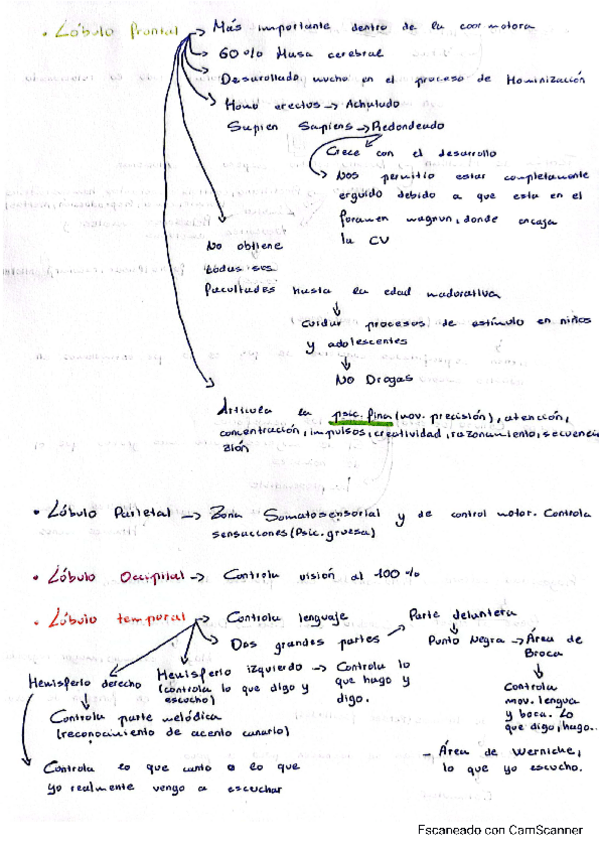 • Lóbulo frontal -> Más importante dentro de la coor motora
-> 60% Masa cerebral
-> Desarrollado mucho en el proceso de Hominización
-> Homo erectus -> Achatado
Sapien Sapiens -> Redondeado
Crece con el desarrollo
Nos permitio estar completamente
erguido debido a que esta en el
foramen magnun, donde encaja
la CV
No obtiene
todas sus
facultades hasta la edad madurativa
cuidar procesos de estímulo en niños
y adolescentes
No Drogas
Articula la psic. fina (mov. precisión), atención,
concentración, impulsos, creatividad, razonamiento, secuencia
zión
• Lóbulo Parietal -> Zona Somatosensorial y de control motor. Controla
sensaciones (Psic. gruesa)
• Lóbulo Occipital -> Controla visión al 100%
• Lóbulo temporal -> Controla lenguaje
-> Dos grandes partes
Parte delantera
Punto Negra -> Área de
Broca
Controla
mov. lengua
y boca. Lo
que digo, hago..
- Área de Wernicke,
lo que yo escucho.
Hemisferio izquierdo -> Controla lo
(controla lo que digo y que hago y
escucho) digo.
Hemisferio derecho
Controla parte melódica
(reconocimiento de acento canario)
Controla lo que canto o lo que
yo realmente vengo a escuchar
Escaneado con CamScanner